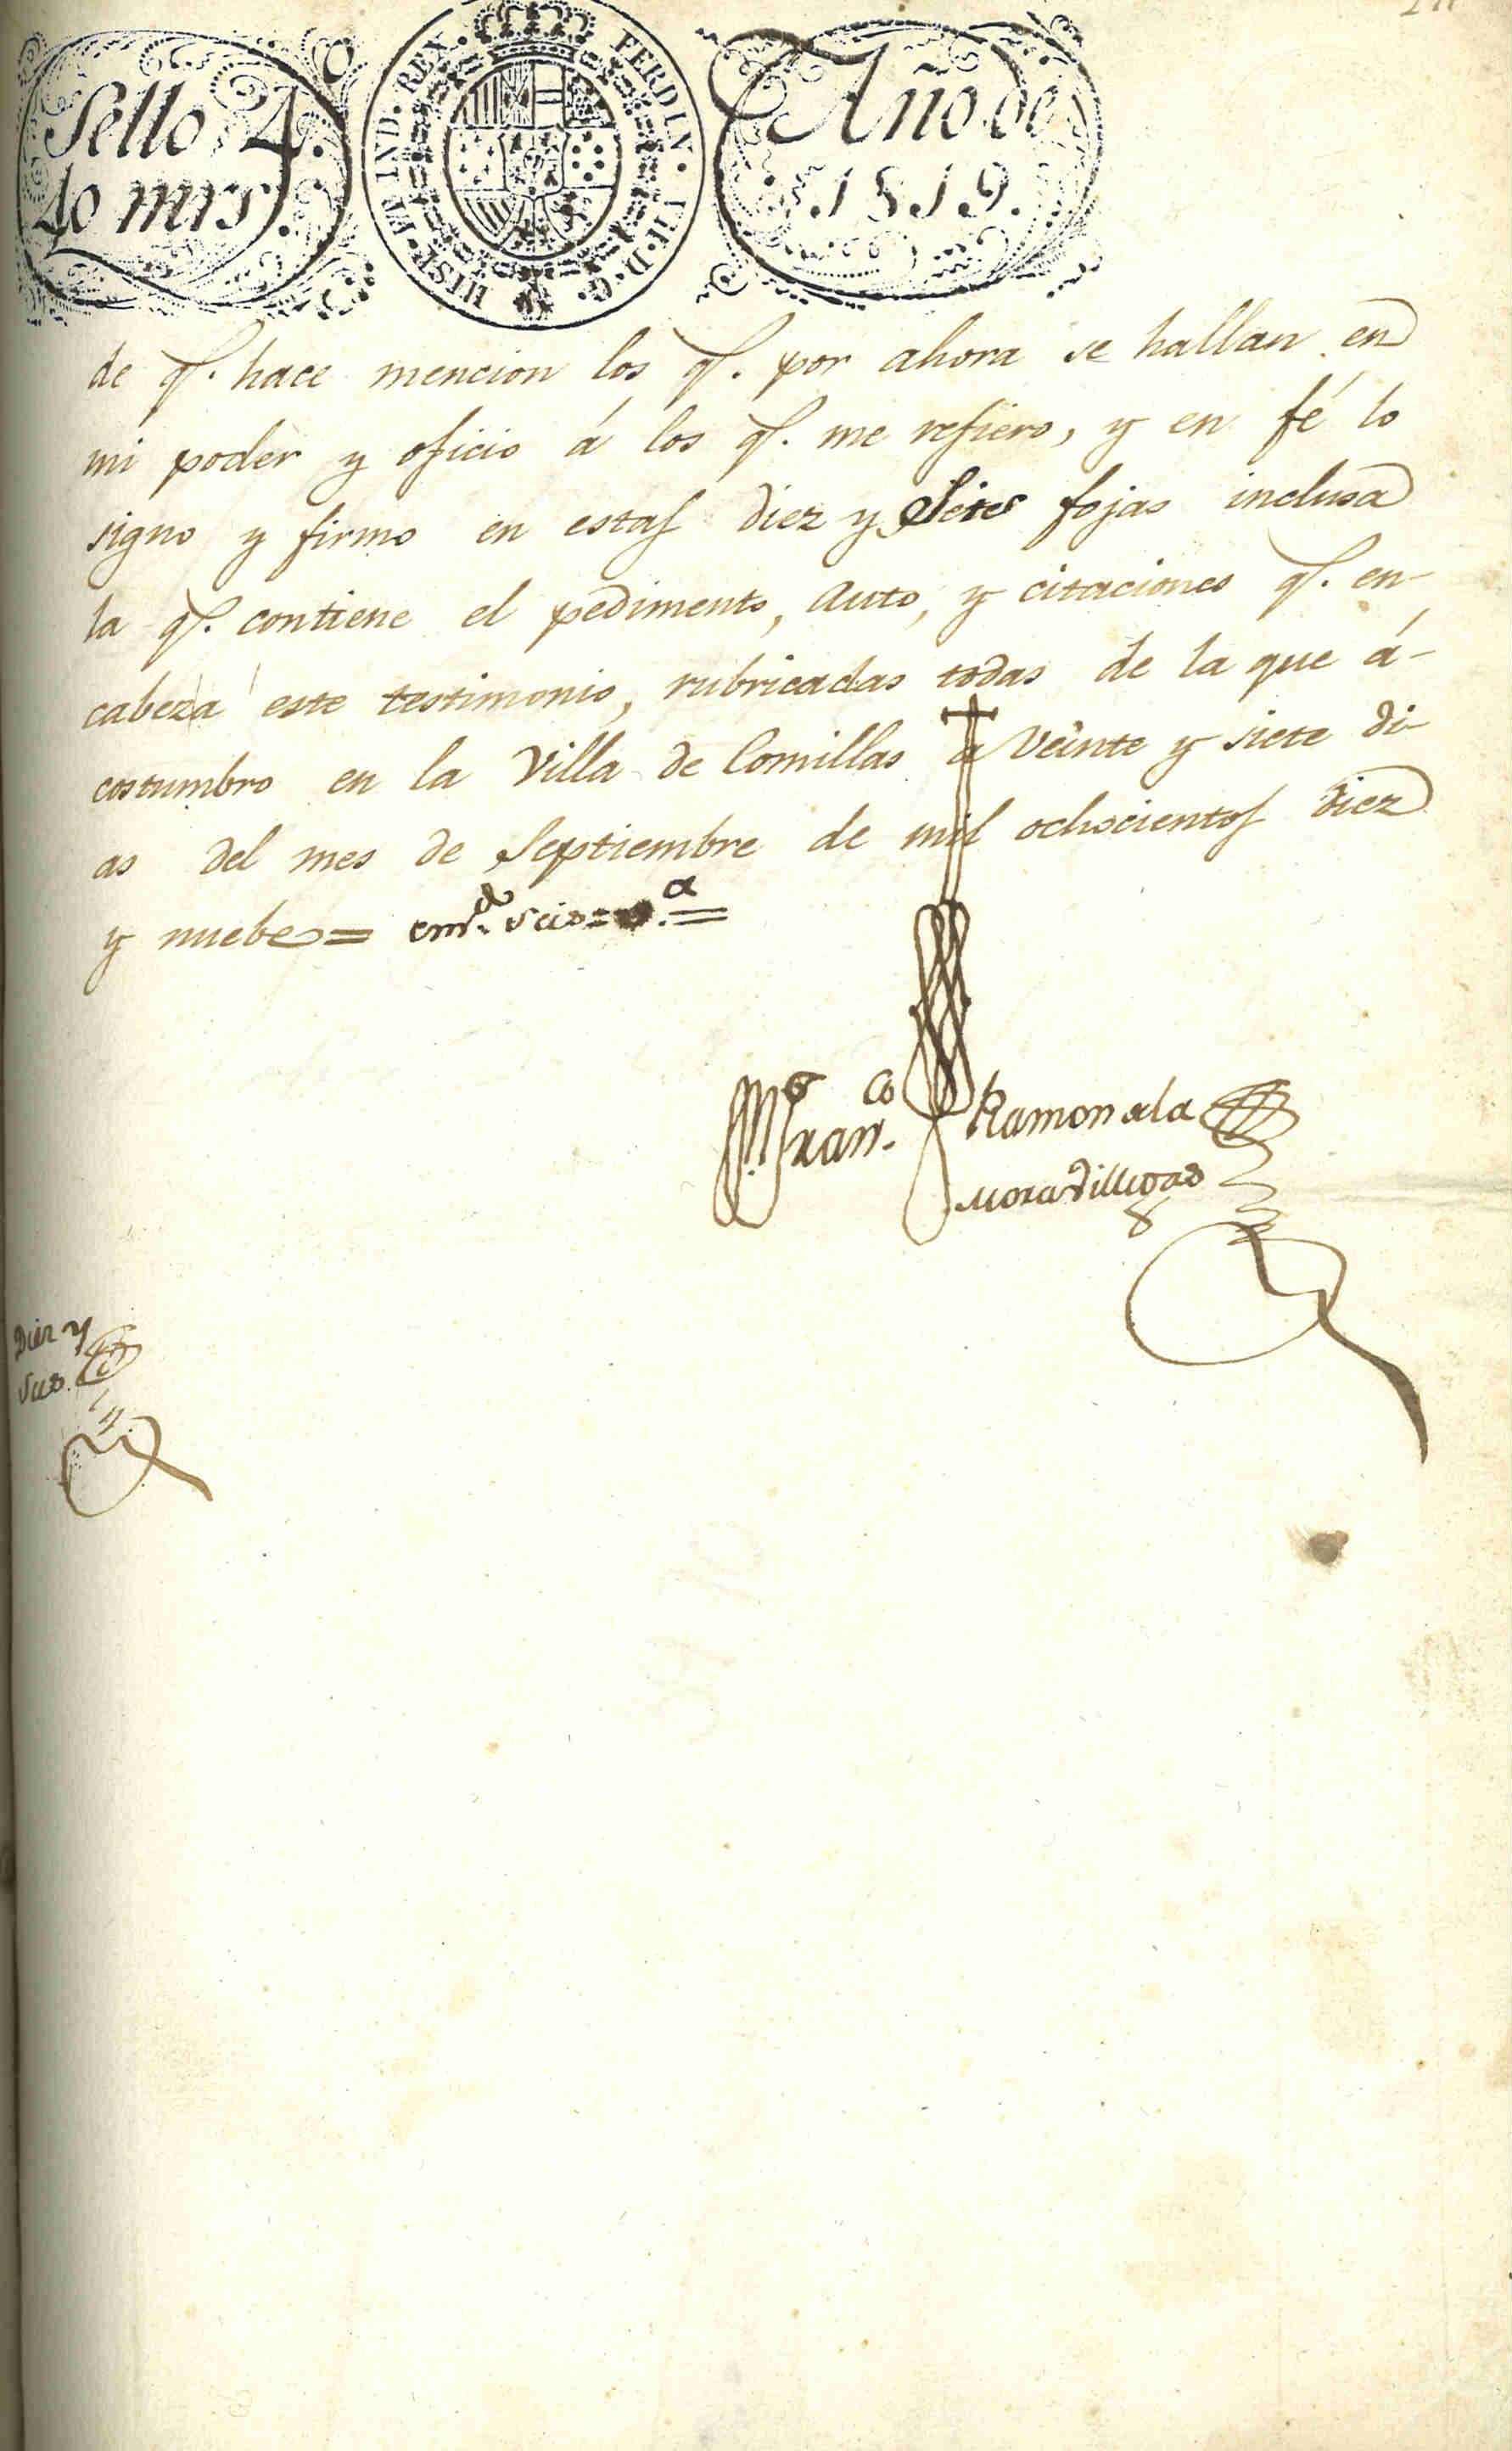 Sello 4.
40 mrs.
HISP. ET IND. REX. FERDIN. VII. D. G.
Año de
1819.
de q.e hace mencion los q.e por ahora se hallan en
mi poder y oficio á los q.e me refiero, y en fé lo
signo y firmo en estas diez y Seis fojas inclusa
la q.e contiene el pedimento, Auto, y citaciones q.e en-
cabeza este testimonio, rubricadas todas de la que á-
costumbro en la Villa de Comillas a Veinte y siete di-
as del mes de Septiembre de mil ochocientos diez
y nuebe = em.do seis = v.a =
Fran.co Ramon de la
Moradillo
Diez y
seis